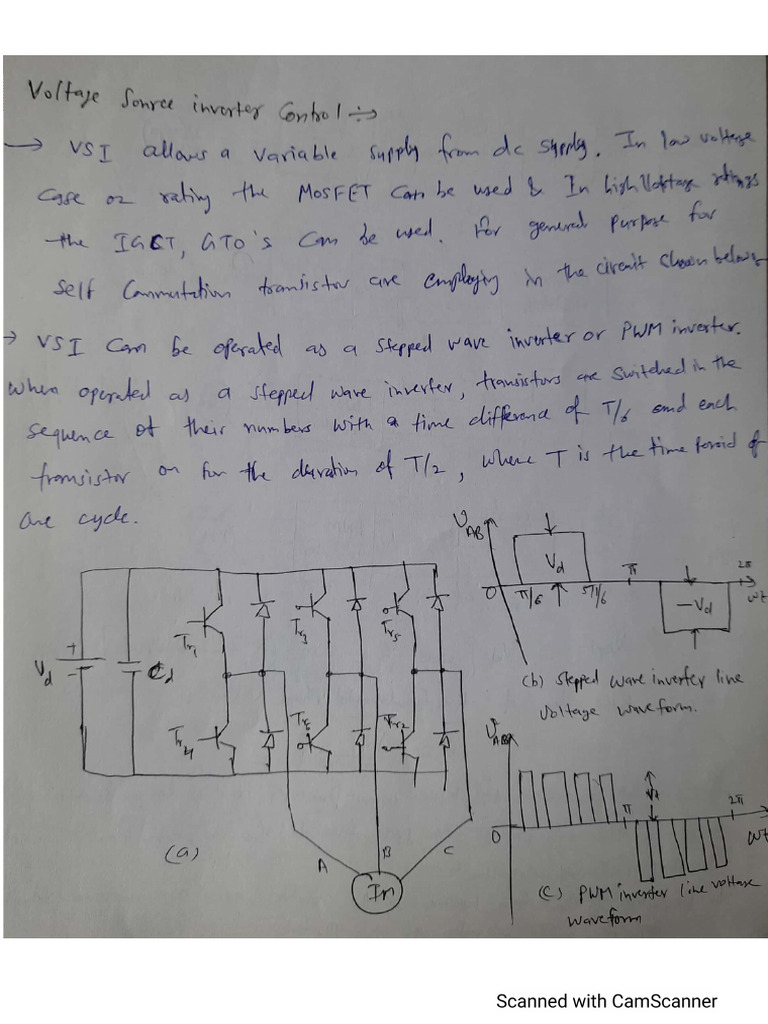 Voltage Source inverter Control :-
→ VSI allows a variable supply from dc supply. In low voltage
case or rating the MOSFET can be used & In high Voltage ratings
the IGCT, GTO's can be used. For general purpose for
self Commutation transistor are employing in the circuit shown below
→ VSI can be operated as a stepped wave inverter or PWM inverter.
When operated as a stepped wave inverter, transistors are switched in the
sequence of their numbers with a time difference of T/6 and each
transistor on for the duration of T/2, where T is the time peroid of
one cycle.
VAB
Vd
0 π/6 5π/6 π 2π wt
-Vd
(b) stepped wave inverter line
voltage waveform.
Vd Cd
Tr1 Tr3 Tr5
Tr4 Tr6 Tr2
A B C
Im
(a)
VAB
0 π 2π wt
(c) PWM inverter line voltage
waveform
Scanned with CamScanner